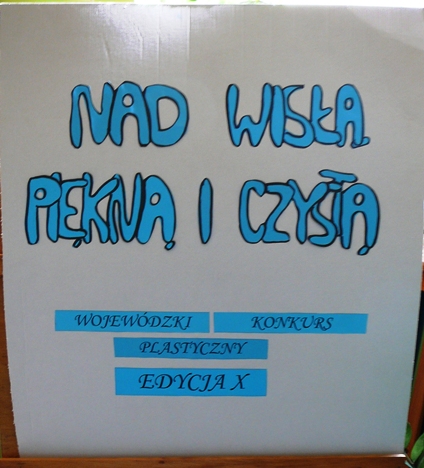 NAD WISŁĄ
PIĘKNĄ I CZYSTĄ
WOJEWÓDZKI KONKURS
PLASTYCZNY
EDYCJA X